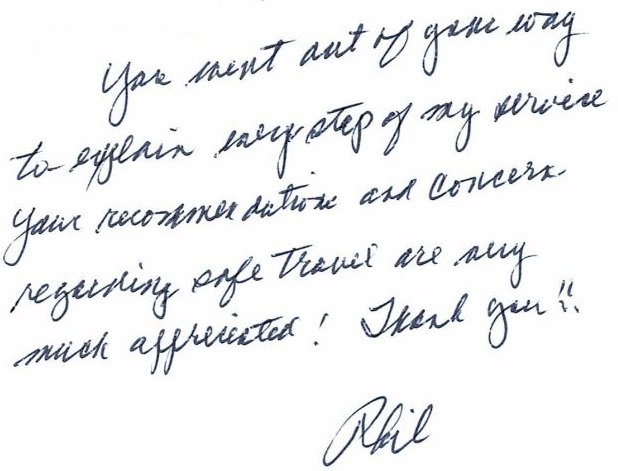 You went out of your way
to explain every step of my service
Your recommendations and concern
regarding safe travel are very
much appreciated! Thank you!!
Phil